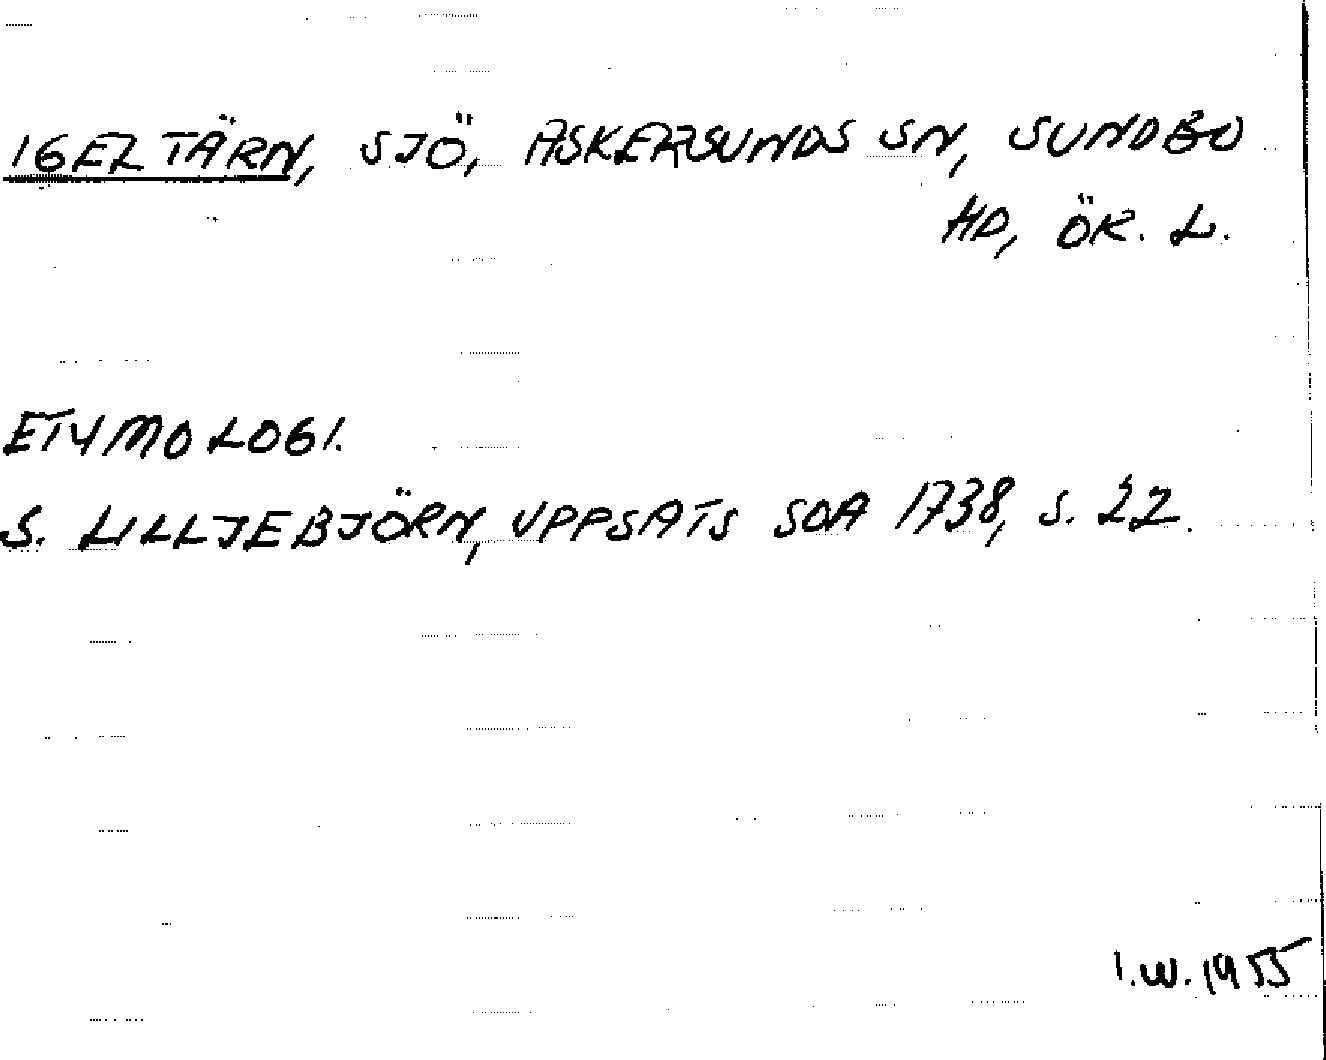 IGELTÄRN, SJÖ, ASKERSUNDS SN, SUNDBO
HD, ÖR. L.
ETYMOLOGI.
S. LILLJEBJÖRN, UPPSATS SOA 1738, S. 22.
I.W. 1955